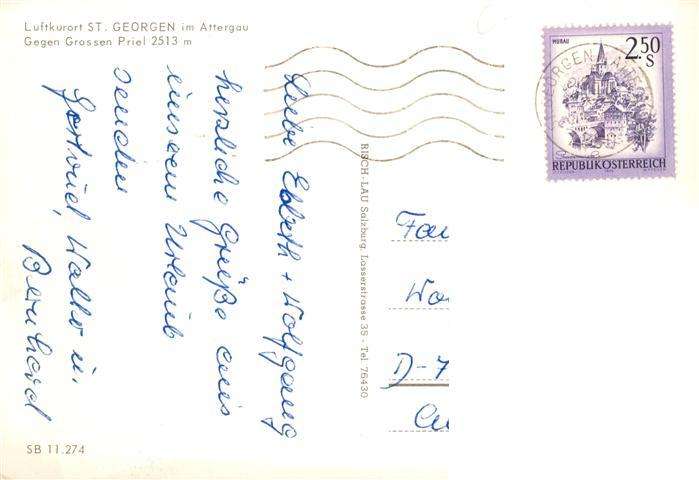 Luftkurort ST. GEORGEN im Attergau
Gegen Grossen Priel 2513 m
MURAU
2.50
S
REPUBLIK ÖSTERREICH
Liebe Elsbeth + Wolfgang
herzliche Grüße aus
unserem Urlaub
senden
Gertrud, Walter u.
Bernhard
RISCH-LAU Salzburg, Lasserstrasse 35 - Tel. 76430
Fa
Wa
D-7
SB 11.274